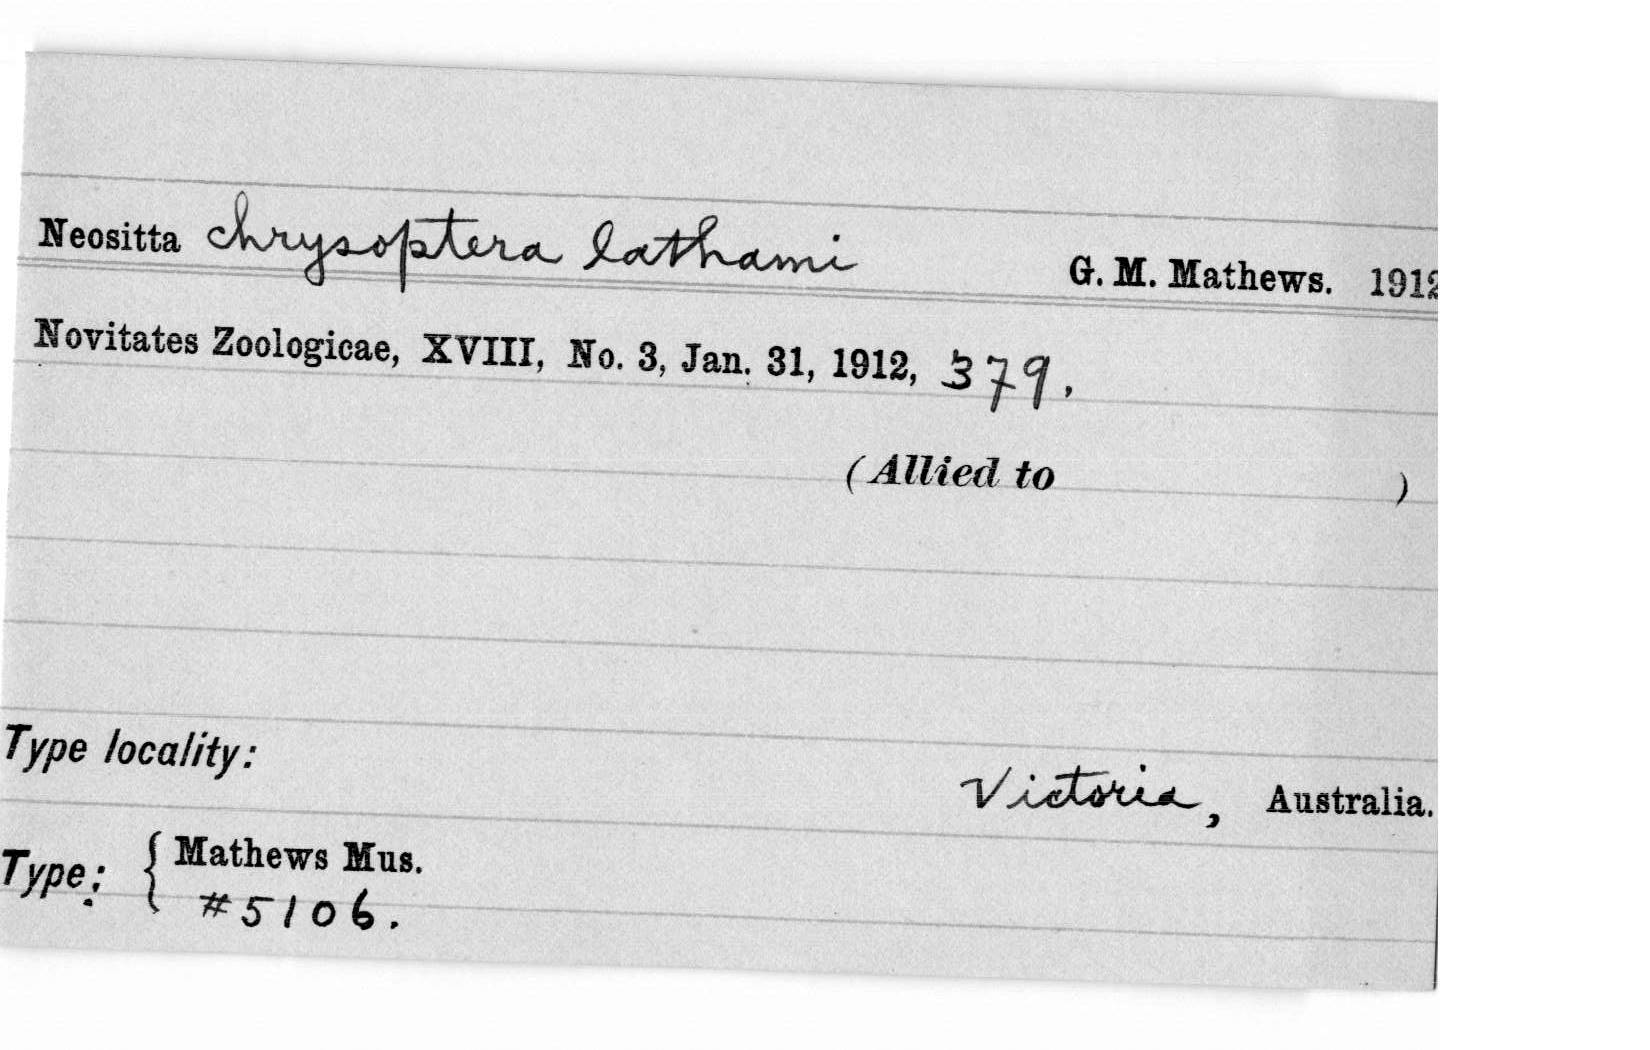 Neositta chrysoptera lathami G. M. Mathews. 1912
Novitates Zoologicae, XVIII, No. 3, Jan. 31, 1912, 379,
(Allied to )
Type locality:
Victoria, Australia.
Type: { Mathews Mus.
#5106.